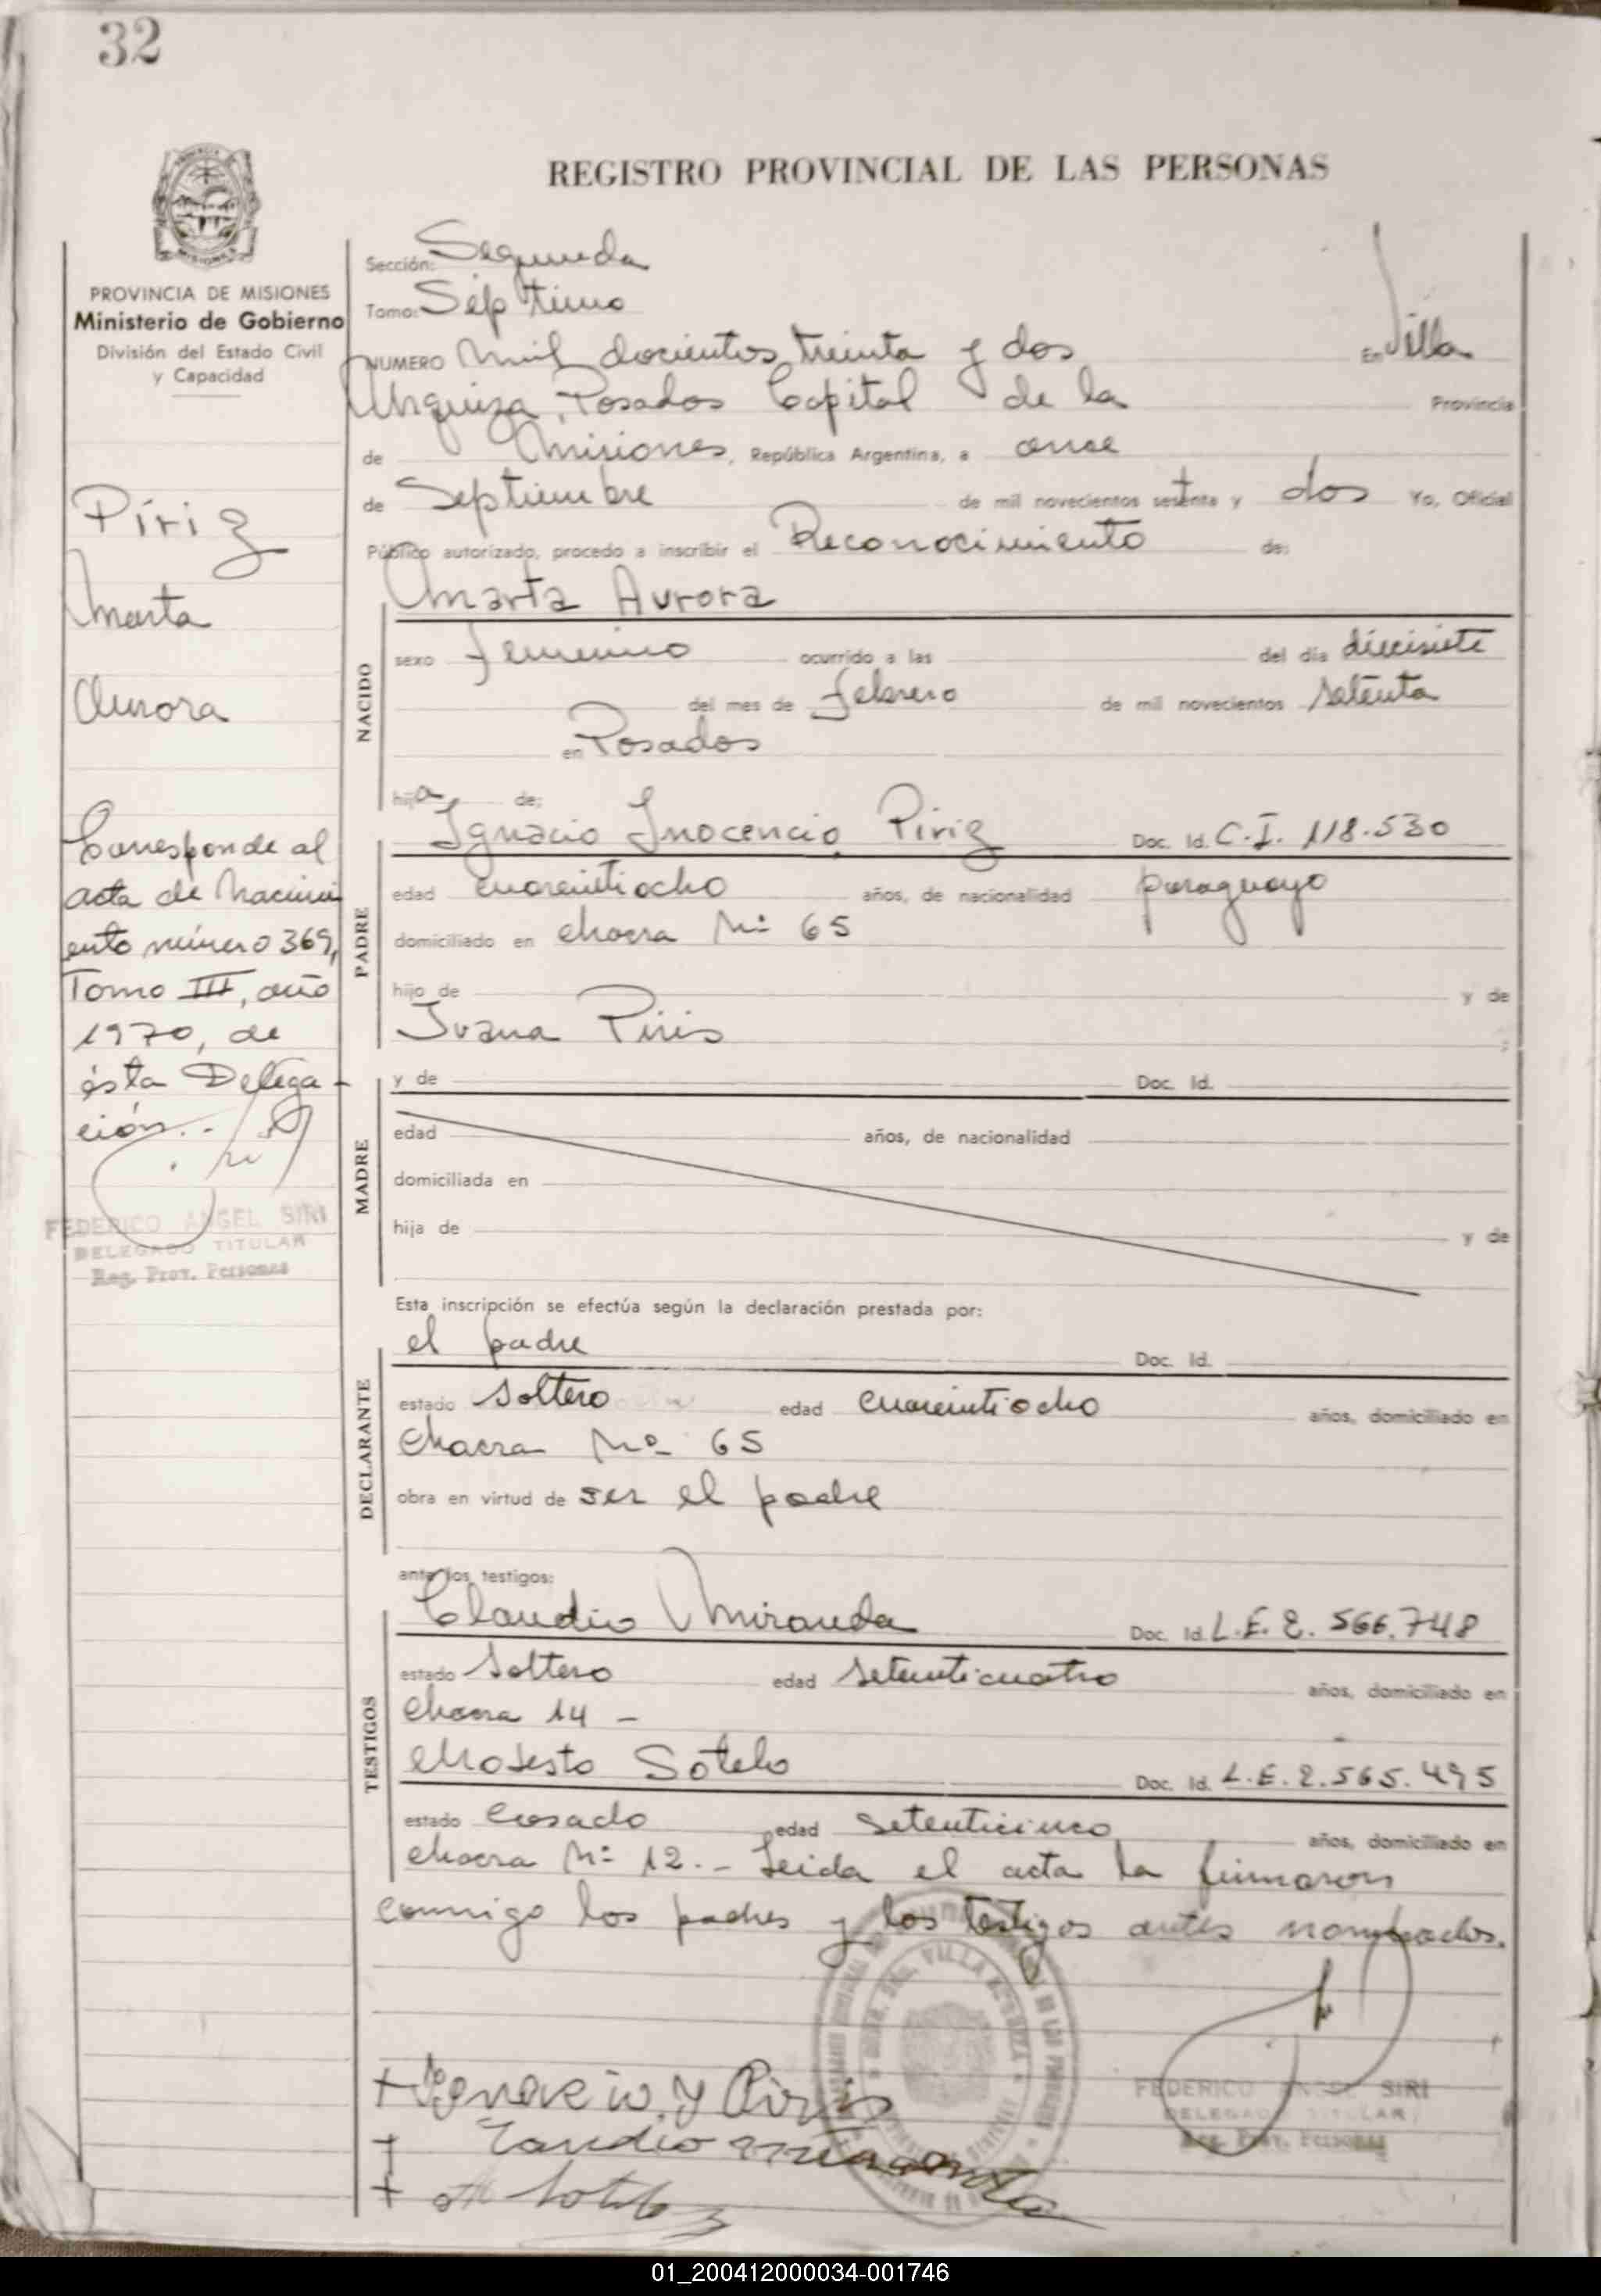 32
REGISTRO PROVINCIAL DE LAS PERSONAS
PROVINCIA DE MISIONES
Ministerio de Gobierno
División del Estado Civil
y Capacidad
Píriz
Marta
Aurora
Corresponde al
acta de Nacimi
ento número 369,
Tomo III, año
1970, de
ésta Delega-
ción.-
FEDERICO ANGEL SIRI
DELEGADO TITULAR
Reg. Prov. Personas
Sección: Segunda
Tomo: Séptimo
NUMERO Mil docientos treinta y dos En Villa
Urquiza, Posadas Capital de la Provincia
de Misiones, República Argentina, a once
de Septiembre de mil novecientos setenta y dos Yo, Oficial
Público autorizado, procedo a inscribir el Reconocimiento de:
Marta Aurora
NACIDO
sexo femenino ocurrido a las del día diecisiete
del mes de febrero de mil novecientos setenta
en Posadas
hija de:
Ignacio Inocencio Piriz Doc. Id. C.I. 118.530
PADRE
edad cuarentiocho años, de nacionalidad paraguayo
domiciliado en chacra Nº 65
hijo de y de
Juana Piris
y de Doc. Id.
MADRE
edad años, de nacionalidad
domiciliada en
hija de y de
Esta inscripción se efectúa según la declaración prestada por:
el padre Doc. Id.
DECLARANTE
estado soltero edad cuarentiocho años, domiciliado en
Chacra Nº 65
obra en virtud de ser el padre
ante los testigos:
Claudio Miranda Doc. Id. L.E. 2.566.748
TESTIGOS
estado soltero edad setenticuatro años, domiciliado en
Chacra 14 -
Modesto Sotelo Doc. Id. L.E. 2.565.495
estado casado edad setenticinco años, domiciliado en
chacra Nº 12.- Leida el acta la firmaron
conmigo los padres y los testigos antes nombrados.
VILLA URQUIZA
+ Ignacio Y Piris
+ Claudio Miranda
+ M Sotelo
FEDERICO ANGEL SIRI
DELEGADO TITULAR
Reg. Prov. Personas
01_200412000034-001746